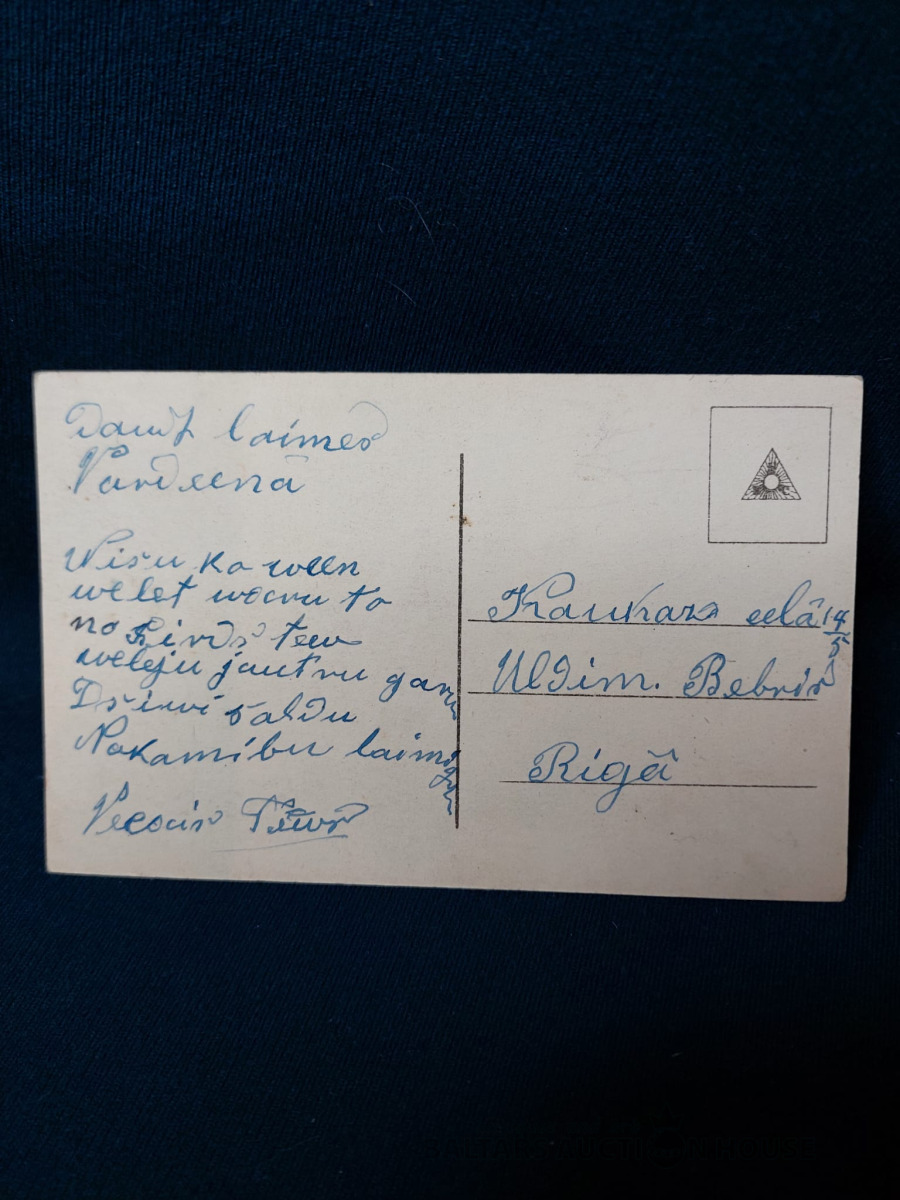 Daudz laimes
Vardeenā
Wisu ko ween
welet waru to
no Sirds tew
weleju jautru garu
Dsiwi saldu
Nakamibu laimigu
Vecais Tēws
Kaukaza eelā 14/5
Uldim. Bebris
Rigā